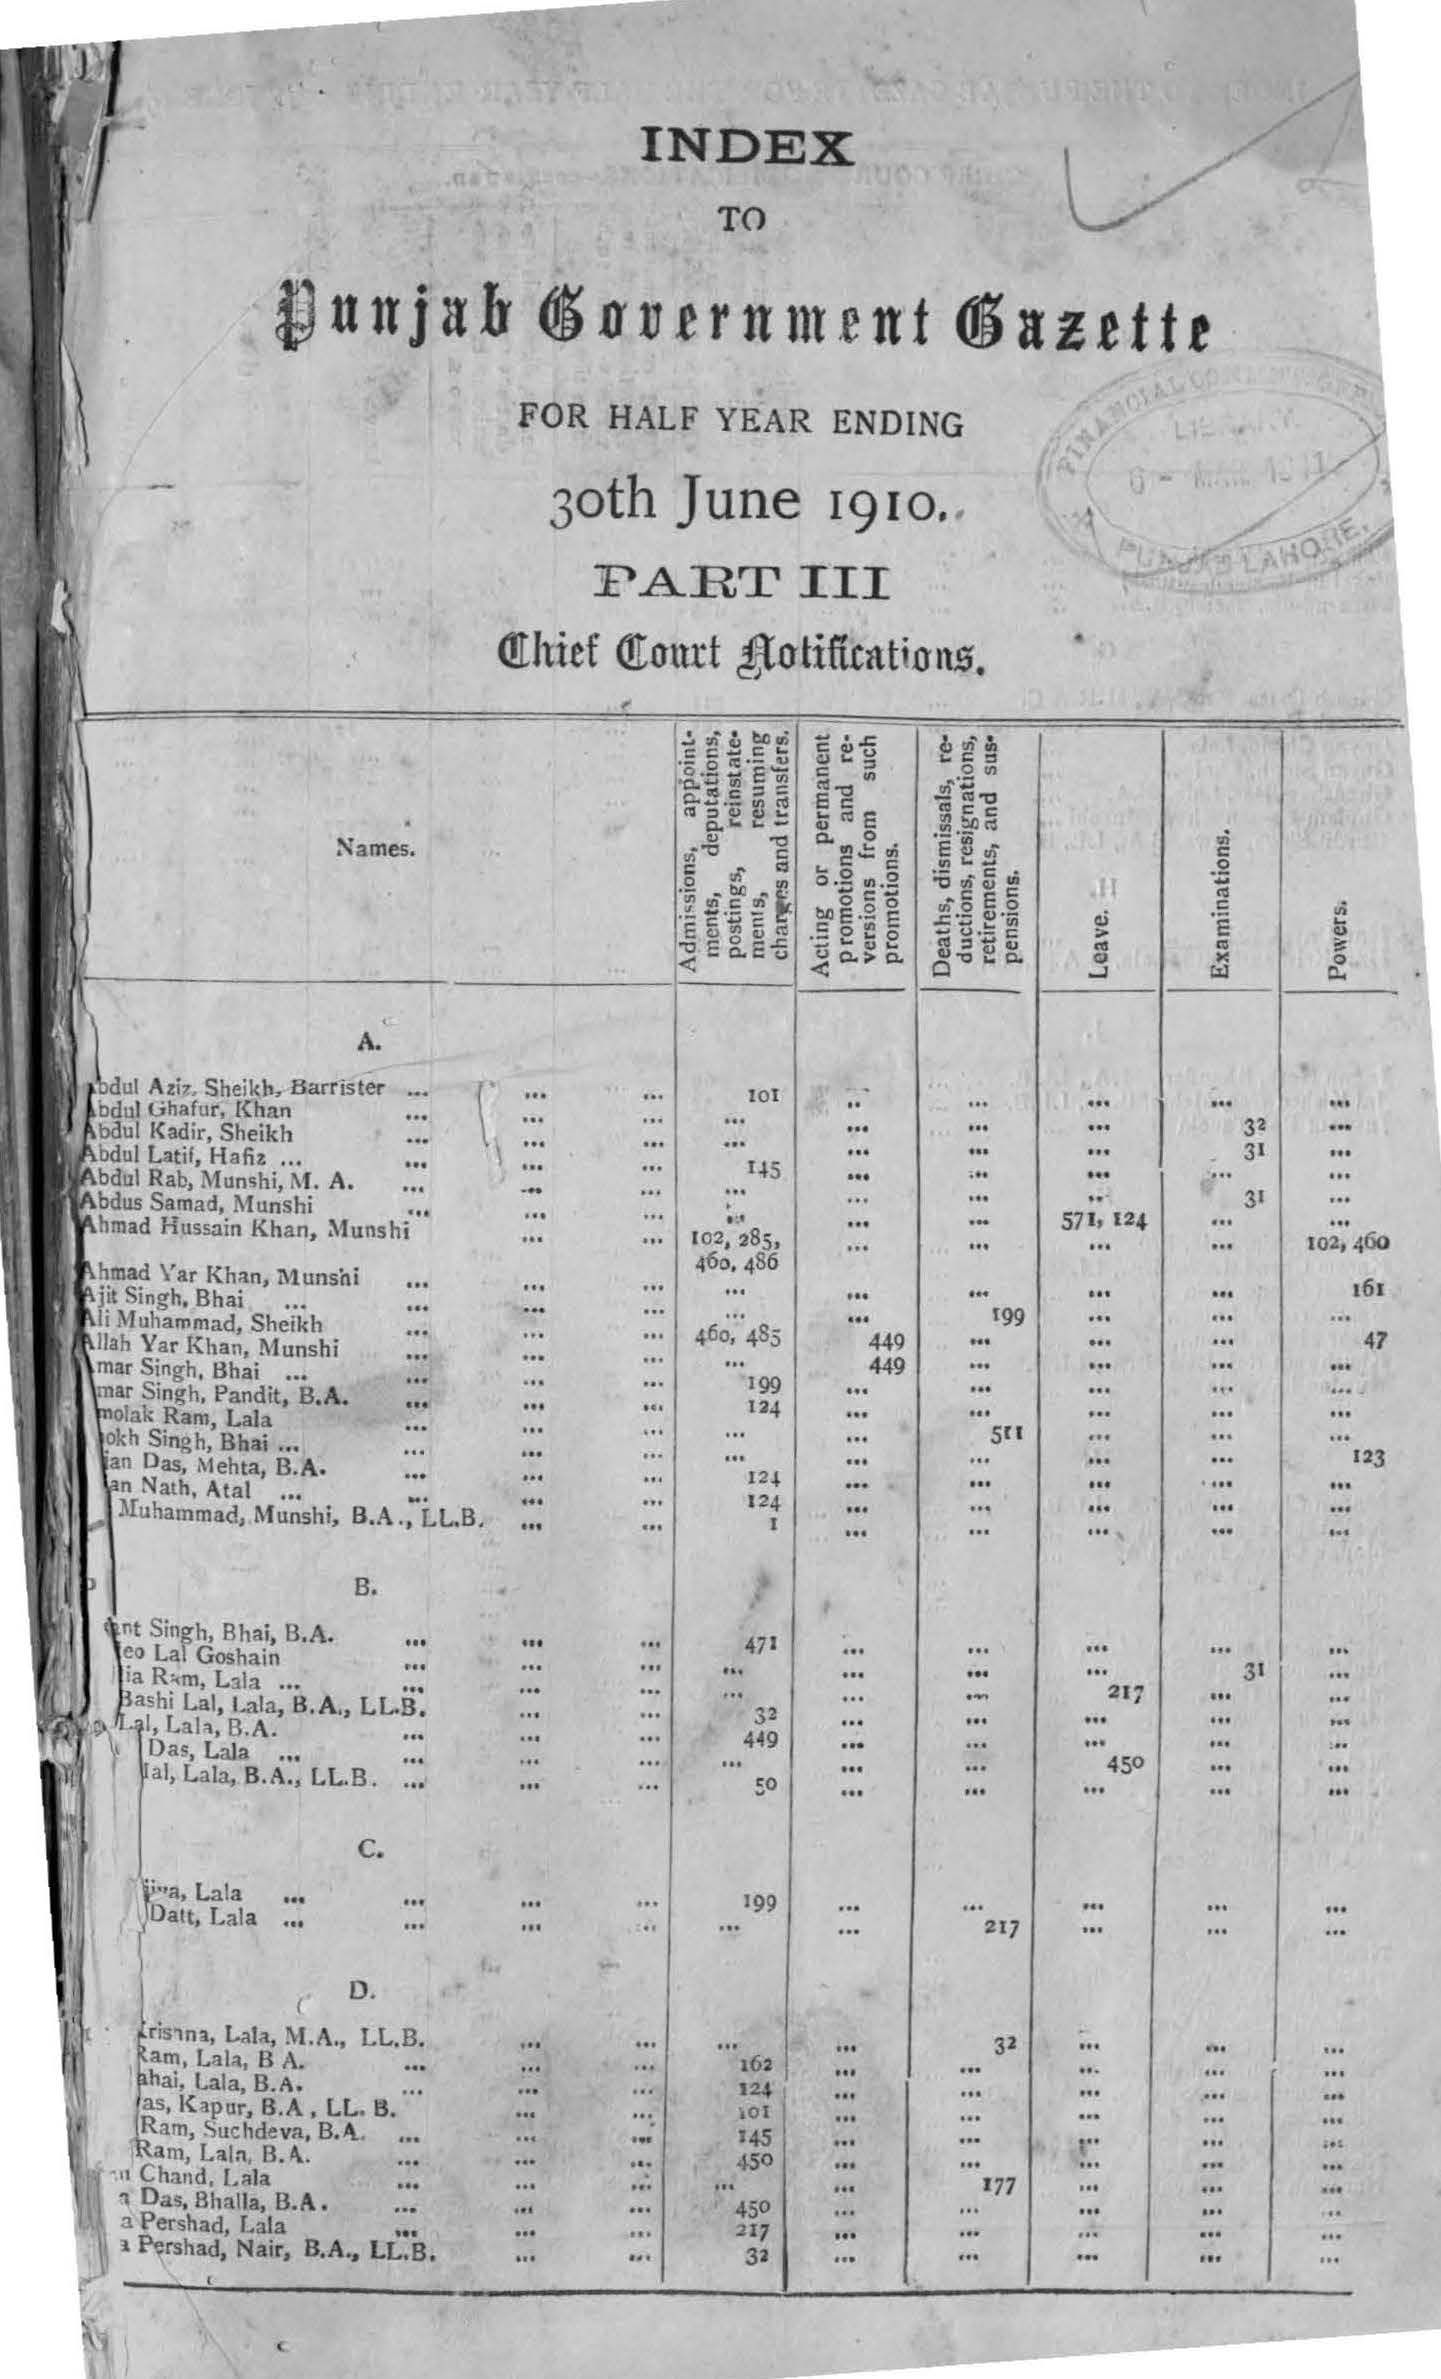 INDEX
TO
Punjab Government Gazette
FOR HALF YEAR ENDING
30th June 1910.
PART III
Chief Court Notifications.
FINANCIAL
LIBRARY
PUNJAB LAHORE.
Names.
Admissions, appoint-
ments, deputations,
postings, reinstate-
ments, resuming
charges and transfers.
Acting or permanent
promotions and re-
versions from such
promotions.
Deaths, dismissals, re-
ductions, resignations,
retirements, and sus-
pensions.
Leave.
Examinations.
Powers.
A.
Abdul Aziz, Sheikh, Barrister ... ... ... 101 ... ... ... ... ...
Abdul Ghafur, Khan ... ... ... ... ... ... ... 32 ...
Abdul Kadir, Sheikh ... ... ... ... ... ... ... 31 ...
Abdul Latif, Hafiz ... ... ... ... 145 ... ... ... ... ...
Abdul Rab, Munshi, M. A. ... ... ... ... ... ... ... 31 ...
Abdus Samad, Munshi ... ... ... ... ... ... 571, 124 ... ...
Ahmad Hussain Khan, Munshi ... ... 102, 285, ... ... ... ... 102, 460
460, 486
Ahmad Yar Khan, Munshi ... ... ... ... ... ... ... ... 161
Ajit Singh, Bhai ... ... ... ... ... ... 199 ... ... ...
Ali Muhammad, Sheikh ... ... ... 460, 485 449 ... ... ... 47
Allah Yar Khan, Munshi ... ... ... ... 449 ... ... ... ...
mar Singh, Bhai ... ... ... ... 199 ... ... ... ... ...
mar Singh, Pandit, B.A. ... ... ... 124 ... ... ... ... ...
molak Ram, Lala ... ... ... ... ... 511 ... ... ...
okh Singh, Bhai ... ... ... ... ... ... ... ... ... 123
jan Das, Mehta, B.A. ... ... ... 124 ... ... ... ... ...
an Nath, Atal ... ... ... ... 124 ... ... ... ... ...
Muhammad, Munshi, B.A., LL.B. ... ... 1 ... ... ... ... ...
B.
ant Singh, Bhai, B.A. ... ... ... 471 ... ... ... ... ...
eo Lal Goshain ... ... ... ... ... ... ... 31 ...
lia Ram, Lala ... ... ... ... ... ... ... 217 ... ...
Bashi Lal, Lala, B.A., LL.B. ... ... 32 ... ... ... ... ...
Lal, Lala, B.A. ... ... ... 449 ... ... ... ... ...
Das, Lala ... ... ... ... ... ... ... 450 ... ...
lal, Lala, B.A., LL.B. ... ... ... 50 ... ... ... ... ...
C.
jiva, Lala ... ... ... ... 199 ... ... ... ... ...
Datt, Lala ... ... ... ... ... ... 217 ... ... ...
D.
Krishna, Lala, M.A., LL.B. ... ... ... ... 32 ... ... ...
Ram, Lala, B A. ... ... ... 162 ... ... ... ... ...
ahai, Lala, B.A. ... ... ... 124 ... ... ... ... ...
as, Kapur, B.A , LL. B. ... ... 101 ... ... ... ... ...
Ram, Suchdeva, B.A. ... ... ... 145 ... ... ... ... ...
Ram, Lala, B.A. ... ... ... 450 ... ... ... ... ...
n Chand, Lala ... ... ... ... ... 177 ... ... ...
a Das, Bhalla, B.A. ... ... ... 450 ... ... ... ... ...
a Pershad, Lala ... ... ... 217 ... ... ... ... ...
a Pershad, Nair, B.A., LL.B. ... ... 32 ... ... ... ... ...